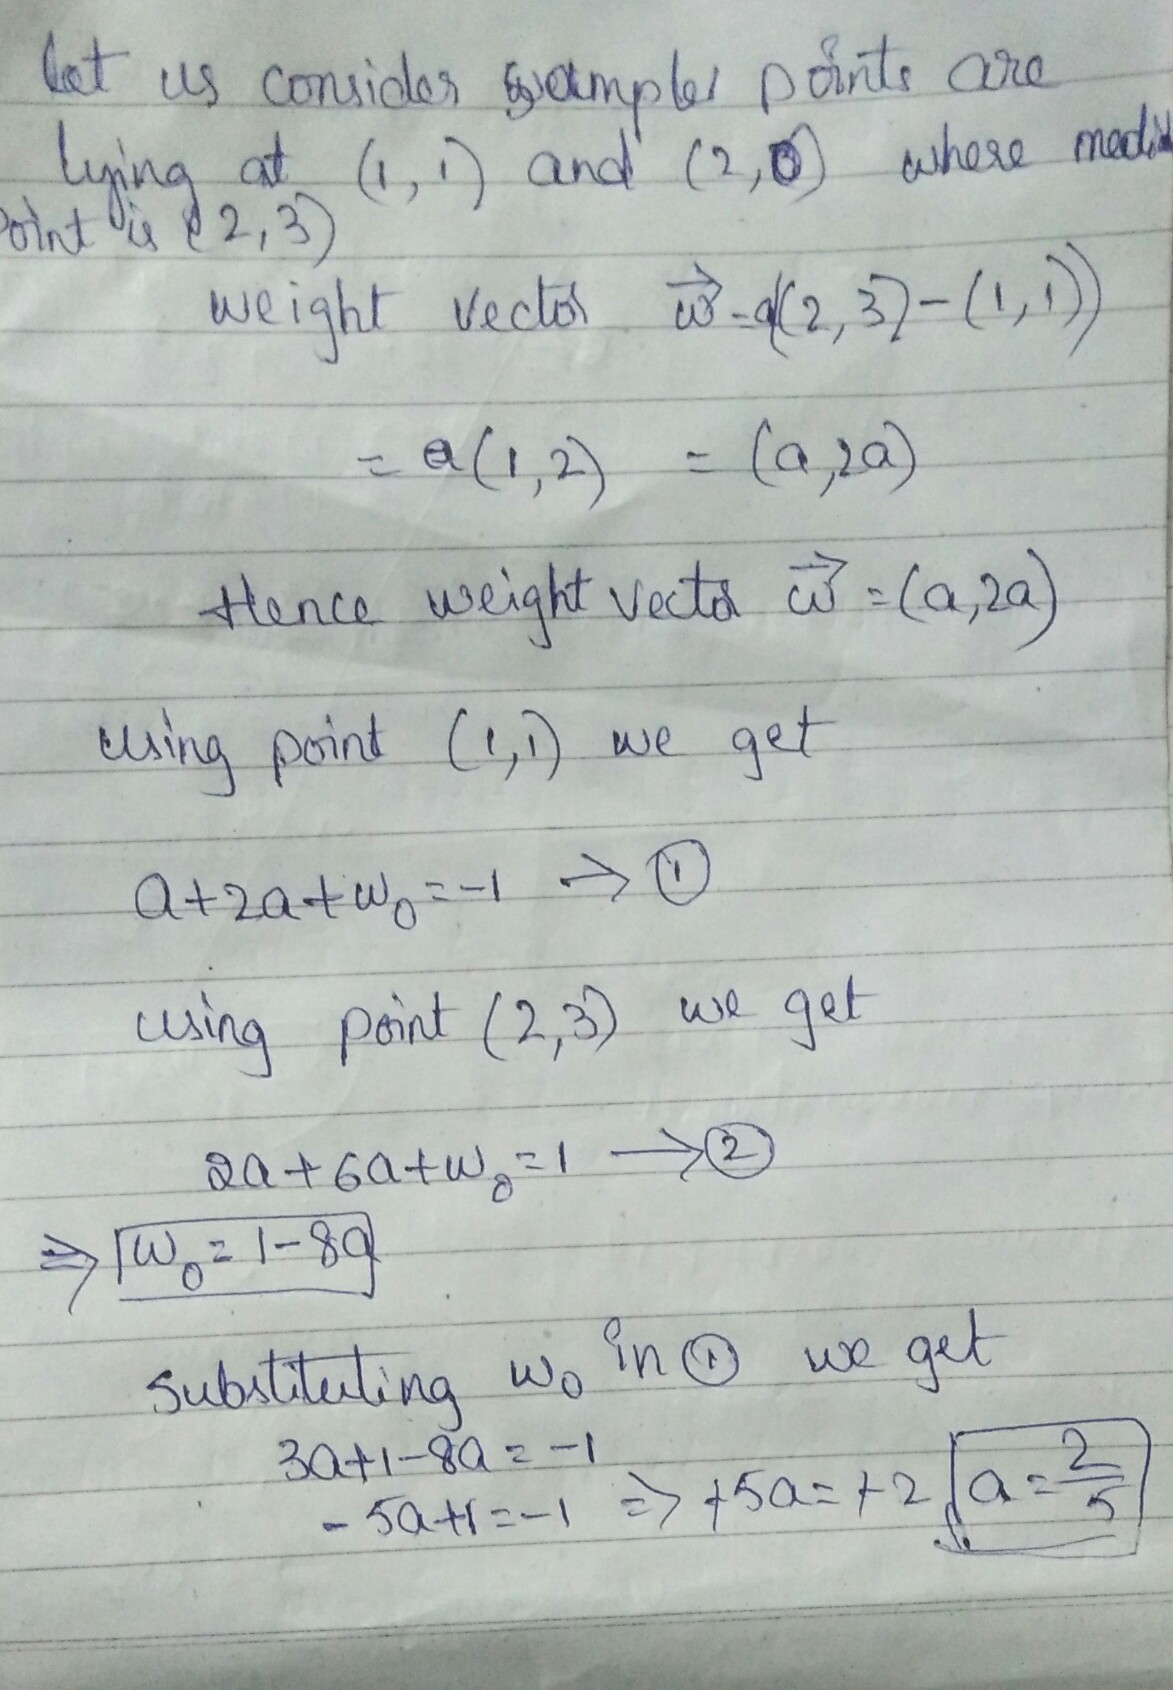 let us consider examples points are
lying at (1,1) and (2,0) where
point is (2,3)
weight vector w⃗ = a((2,3)-(1,1))
= a(1,2) = (a,2a)
Hence weight vector w⃗ = (a,2a)
using point (1,1) we get
a+2a+w₀=-1 → ①
using point (2,3) we get
2a+6a+w₀=1 → ②
⇒ w₀ = 1-8a
substituting w₀ in ① we get
3a+1-8a=-1
-5a+1=-1 ⇒ +5a=+2 a=2/5